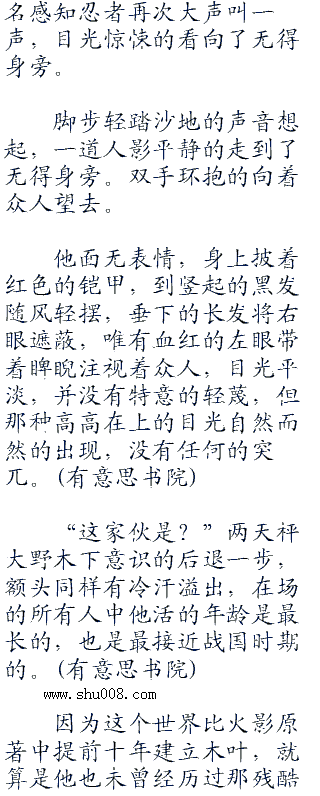 名感知忍者再次大声叫一
声，目光惊悚的看向了无得
身旁。
脚步轻踏沙地的声音想
起，一道人影平静的走到了
无得身旁。双手环抱的向着
众人望去。
他面无表情，身上披着
红色的铠甲，到竖起的黑发
随风轻摆，垂下的长发将右
眼遮蔽，唯有血红的左眼带
着睥睨注视着众人，目光平
淡，并没有特意的轻蔑，但
那种高高在上的目光自然而
然的出现，没有任何的突
兀。(有意思书院)
“这家伙是？”两天秤
大野木下意识的后退一步，
额头同样有冷汗溢出，在场
的所有人中他活的年龄是最
长的，也是最接近战国时期
的。(有意思书院)
www.shu008.com
因为这个世界比火影原
著中提前十年建立木叶，就
算是他也未曾经历过那残酷